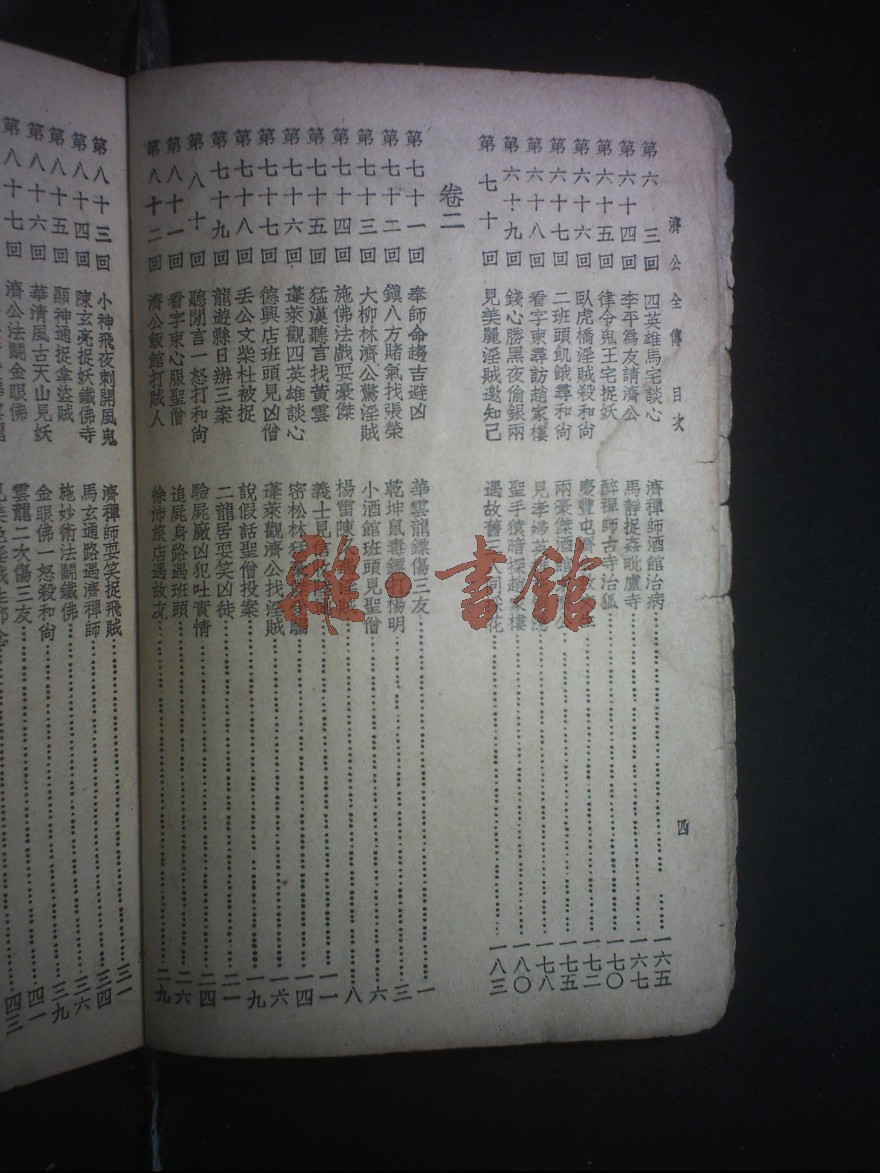 濟公全傳 目次 四
第六 三回 四英雄馬宅談心 濟禪師酒館治病 一六五
第六十四回 李平爲友請濟公 馬靜捉姦毗盧寺 一六七
第六十五回 律令鬼王宅捉妖 醉禪師古寺治狐 一七〇
第六十六回 臥虎橋淫賊殺和尚 慶豐屯 一七二
第六十七回 二班頭飢餓尋和尚 兩豪傑酒館 一七五
第六十八回 看字柬尋訪趙家樓 見孝婦 一七八
第六十九回 錢心勝黑夜偷銀兩 聖手猿暗探趙家樓 一八〇
第七十回 見美麗淫賊邀知己 遇故舊 同採花 一八三
卷二
第七十一回 奉師命趨吉避凶 華雲龍鏢傷三友 一
第七十二回 鎭八方賭氣找張榮 乾坤鼠毒鏢打楊明 三
第七十三回 大柳林濟公驚淫賊 小酒館班頭見聖僧 六
第七十四回 施佛法戲耍豪傑 楊雷陳 賊 八
第七十五回 猛漢聽言找黃雲 義士見 一一
第七十六回 蓬萊觀四英雄談心 密松林 騙 一六
第七十七回 德興店班頭見凶僧 蓬萊觀濟公找淫賊 一六
第七十八回 丢公文柴杜被捉 說假話聖僧投案 一九
第七十九回 龍游縣日辦三案 二龍居耍笑凶徒 二一
第八十回 聽閒言一怒打和尚 驗屍厰凶犯吐實情 二四
第八十一回 看字柬心服聖僧 追屍身路遇班頭 二六
第八十二回 濟公飯館打賊人 徐沛旅店遇故友 二九
第八十三回 小神飛夜刺開風鬼 濟禪師耍笑捉飛賊 三一
第八十四回 陳玄亮捉妖鐵佛寺 馬玄通路遇濟禪師 三四
第八十五回 顯神通捉拿盜賊 施妙術法鬭鐵佛 三六
第八十六回 華清風古天山見妖 金眼佛一怒殺和尚 三九
第八十七回 濟公法鬭金眼佛 雲龍二次傷三友 四一
四三